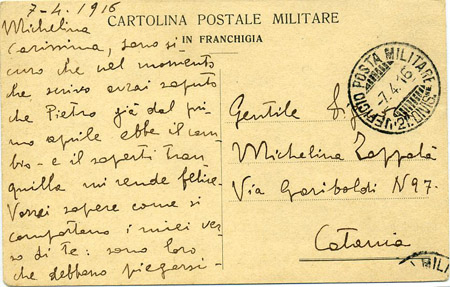 7-4.1916
CARTOLINA POSTALE MILITARE
IN FRANCHIGIA
Michelina
Carissima, sono si-
curo che nel momento
che scrivo avrai saputo
che Pietro già dal pri
mo aprile ebbe il cam
bio - e il saperti tran
quilla mi rende felice.
Vorrei sapere come si
comportano i miei ver
so di te: sono loro
che debbono piegarsi -
UFFICIO POSTA MILITARE
7.4.16
21. DIVIS.
Gentile
Michelina Zappalà
Via Garibaldi N 97.
Catania
MIL